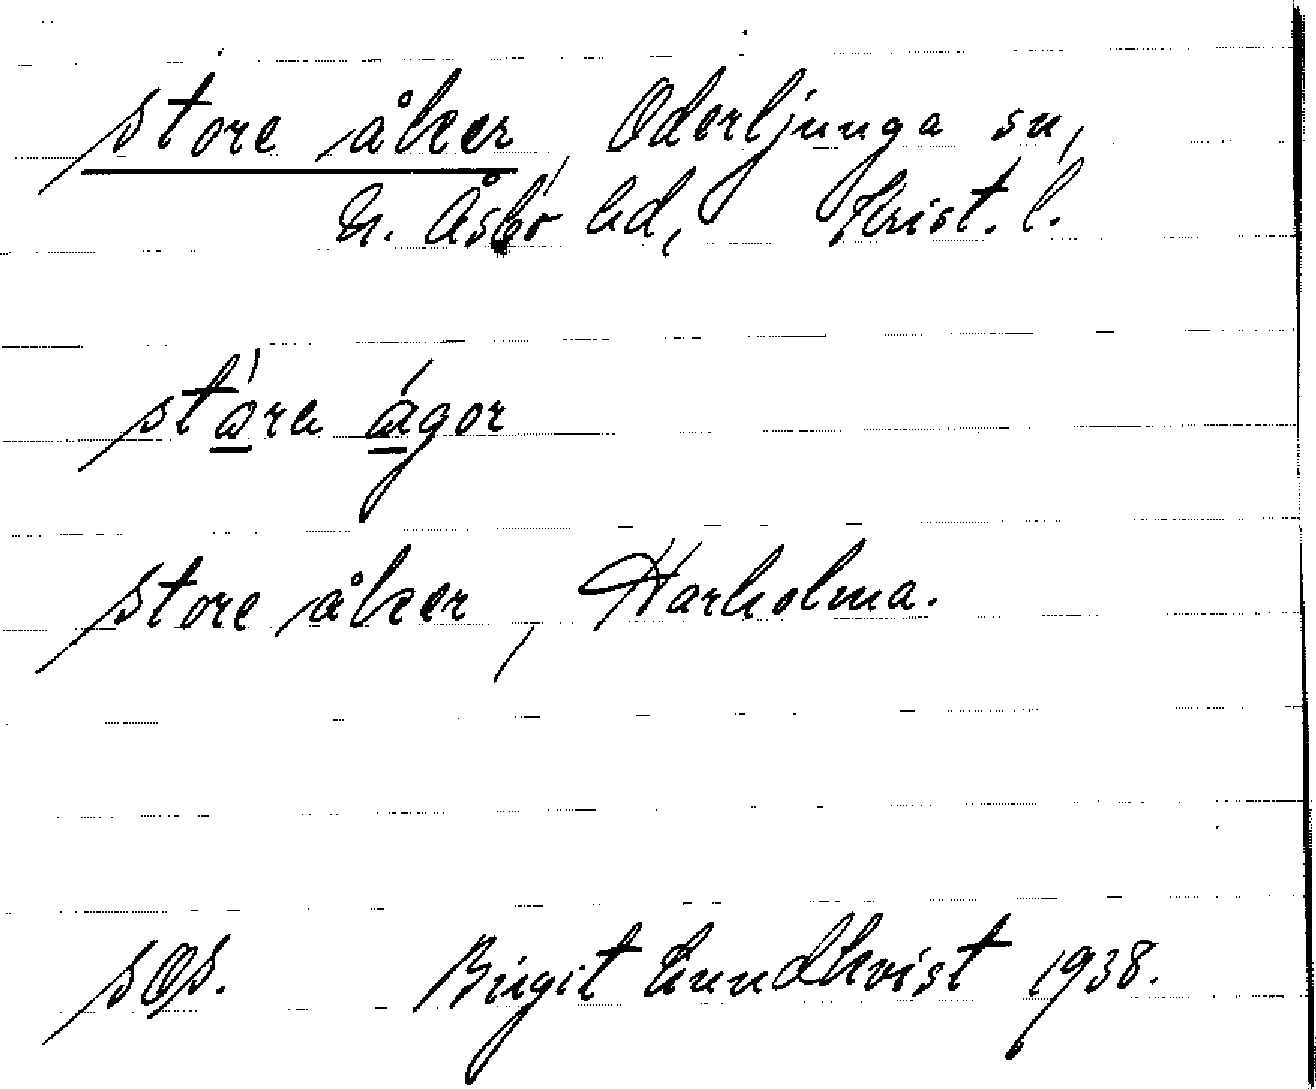 store åker, Oderljunga sn,
N. Åsbo hd, Krist. l.
stóra ágor
store åker, Harholma.
søs. Birgit Lundkvist 1938.